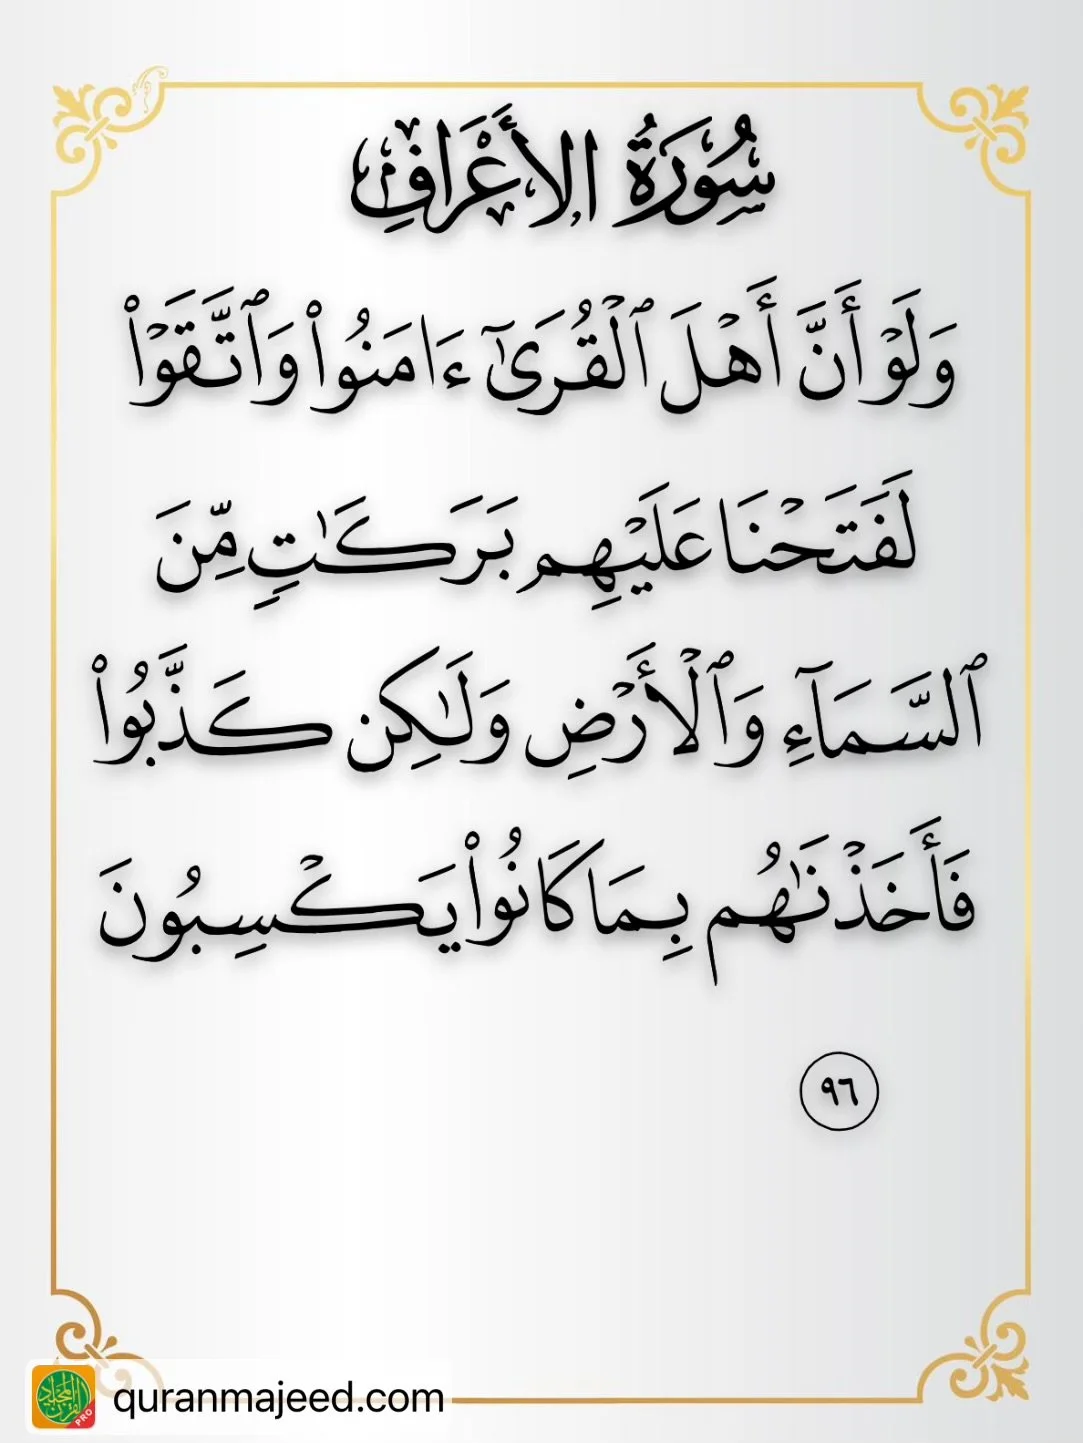 سُورَةُ الأَعْرَافِ
وَلَوْ أَنَّ أَهْلَ ٱلْقُرَىٰٓ ءَامَنُوا۟ وَٱتَّقَوْا۟
لَفَتَحْنَا عَلَيْهِم بَرَكَـٰتٍ مِّنَ
ٱلسَّمَآءِ وَٱلْأَرْضِ وَلَـٰكِن كَذَّبُوا۟
فَأَخَذْنَـٰهُم بِمَا كَانُوا۟ يَكْسِبُونَ
٩٦
quranmajeed.com